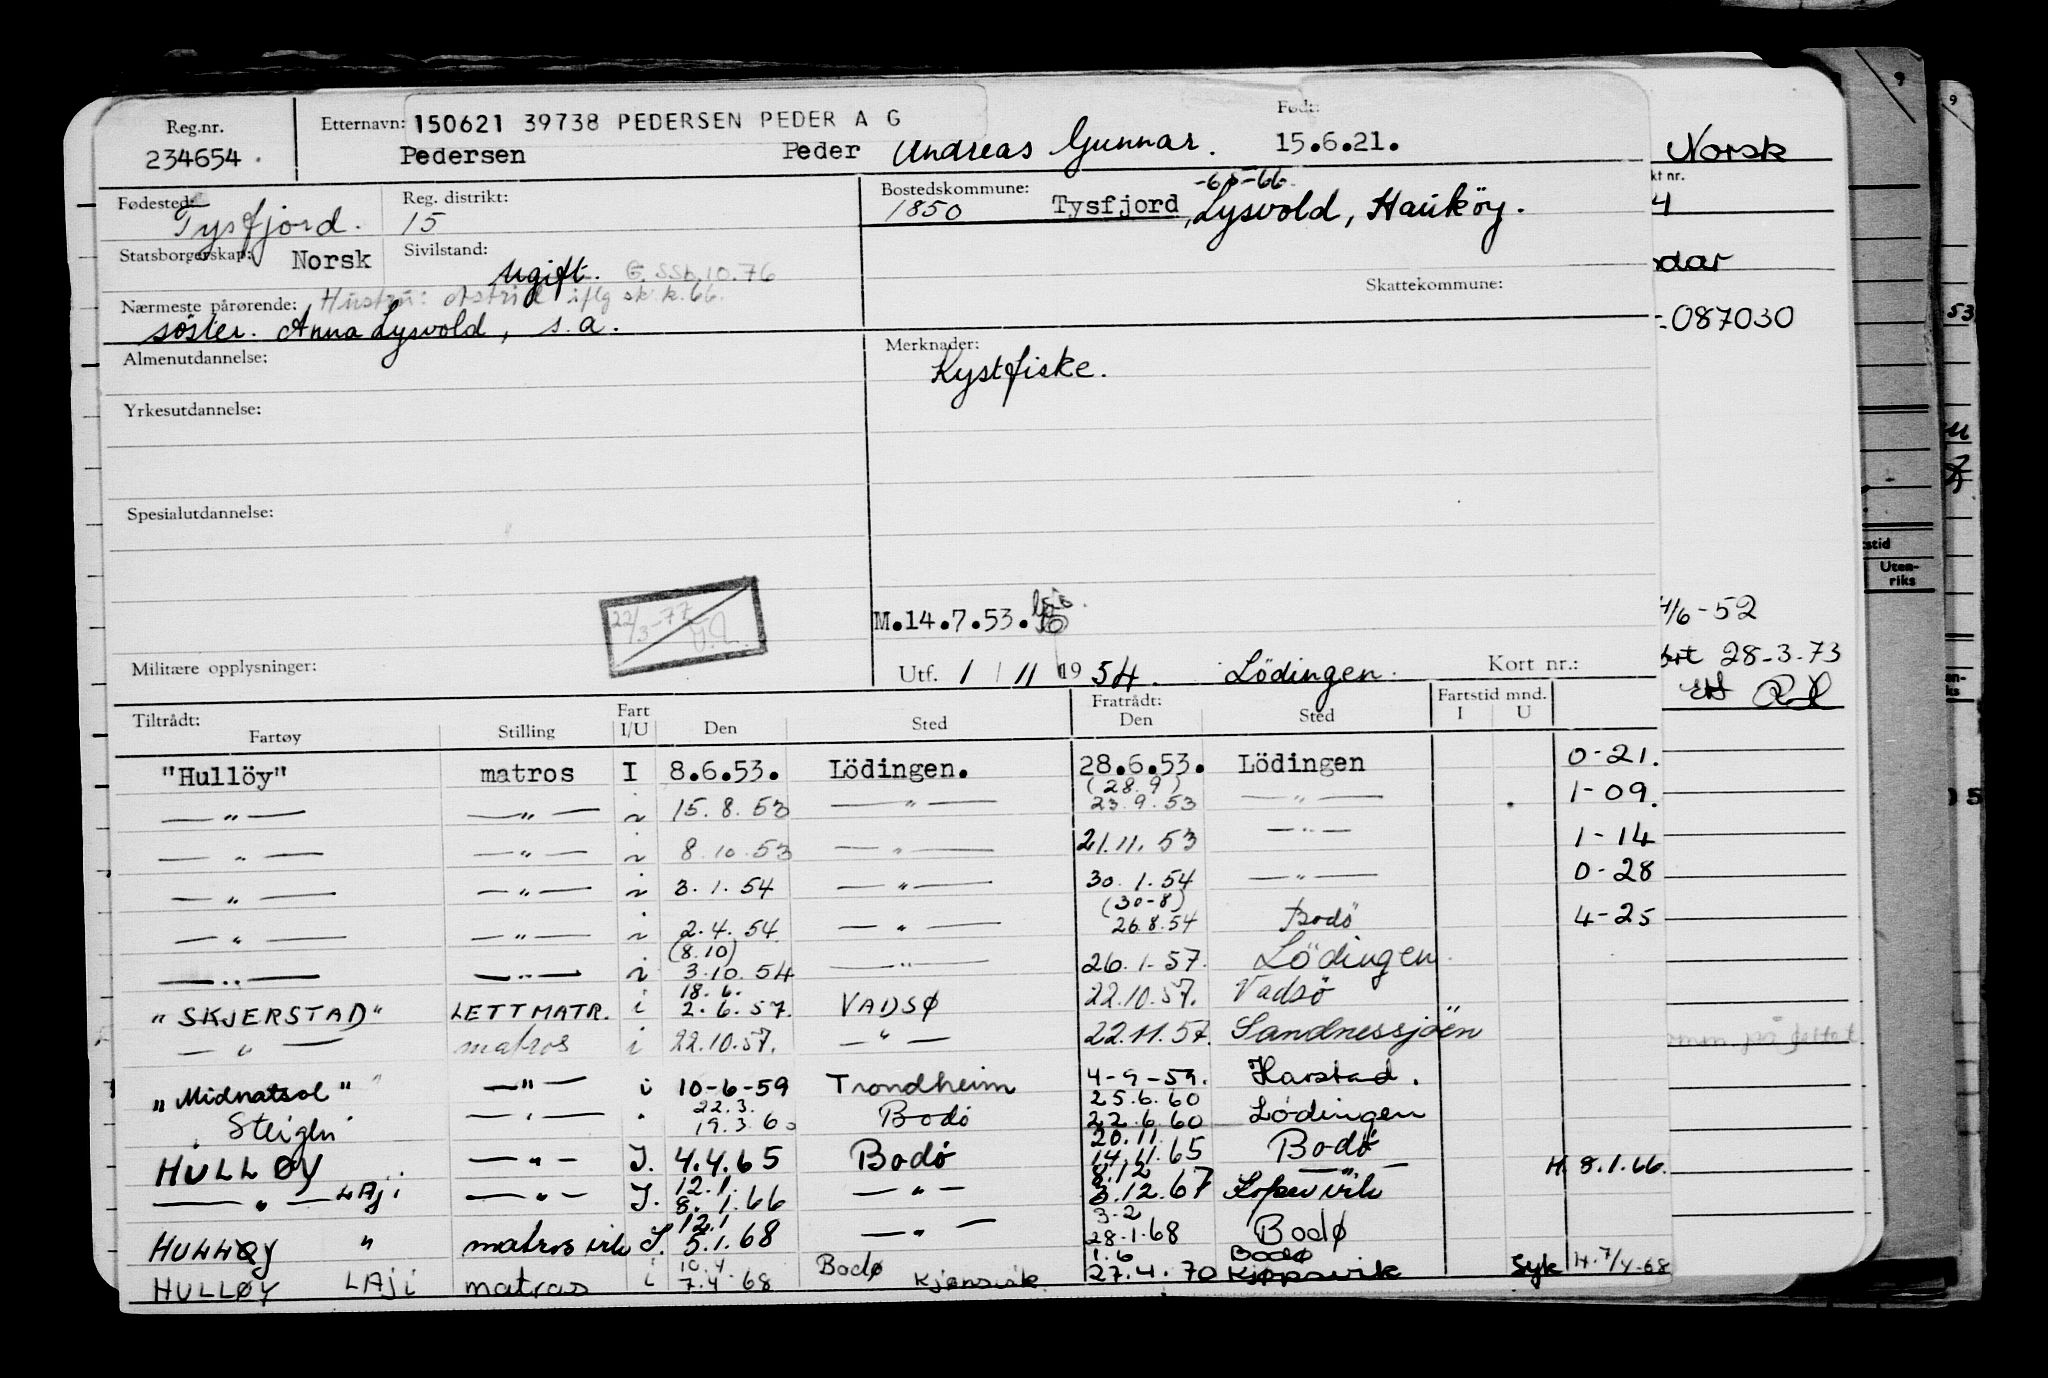 Reg.nr. Etternavn: 150621 39738 PEDERSEN PEDER A G Født:
234654. Pedersen Peder Andreas Gunnar. 15.6.21. Norsk
Fødested: Reg. distrikt: Bostedskommune: -65-66- kt nr.
Tysfjord. 15 1850 Tysfjord, Lysvold, Hauköy. 4
Statsborgerskap: Norsk Sivilstand: ugift. G. SSb.10.76 dar
Nærmeste pårørende: Hustru: Astrid iflg sk.k.66. Skattekommune:
søster. Anna Lysvold, s.a. 087030
Almenutdannelse: Merknader:
Kystfiske.
Yrkesutdannelse:
Spesialutdannelse:
22/3-77 M.14.7.53. 4/6-52
Militære opplysninger: Utf. 1/11 1954. Lödingen. Kort nr.: 28-3.73
Tiltrådt: Fratrådt: Fartstid mnd.
Fartøy Stilling Fart I/U Den Sted Den Sted I U
"Hullöy" matros I 8.6.53. Lödingen. 28.6.53. Lödingen 0-21.
(28.9)
— " — — " — i 15.8.53 — " — 23.9.53 — " — 1-09.
— " — — " — i 8.10.53 — " — 21.11.53 — " — 1-14
— " — — " — i 3.1.54 — " — 30.1.54 — " — 0-28
(30-8)
— " — — " — i 2.4.54 — " — 26.8.54 Bodö 4-25
(8.10)
— " — — " — i 3.10.54 — " — 26.1.57. Lödingen
18.6.
"SKJERSTAD" LETTMATR. i 2.6.57. VADSØ 22.10.57. Vadsö
— " — matros i 22.10.57. — " — 22.11.57. Sandnessjöen
"Midnatsol" — " — i 10-6-59 Trondheim 4-9-59. Harstad.
22.3. 25.6.60
Steigen — " — " 19.3.60 Bodö 22.6.60 Lödingen
20.11.
HULLØY — " — I. 4.4.65 Bodö 14.11.65 Bodö
12.1. 8.12
— " — LAJI — " — I. 8.1.66 — " — 3.12.67 Kopervik — " — H. 8.1.66.
12.1 3-2
HULLØY " matros vik I. 5.1.68 — " — 28.1.68 Bodø
10.4 1.6 Bodø
HULLØY LAJI matros i 7.4.68 Bodø Kjøpsvik 27.4.70 Kjøpsvik Syk H.7/4-68
9
9
53
tstid
Uten-
riks